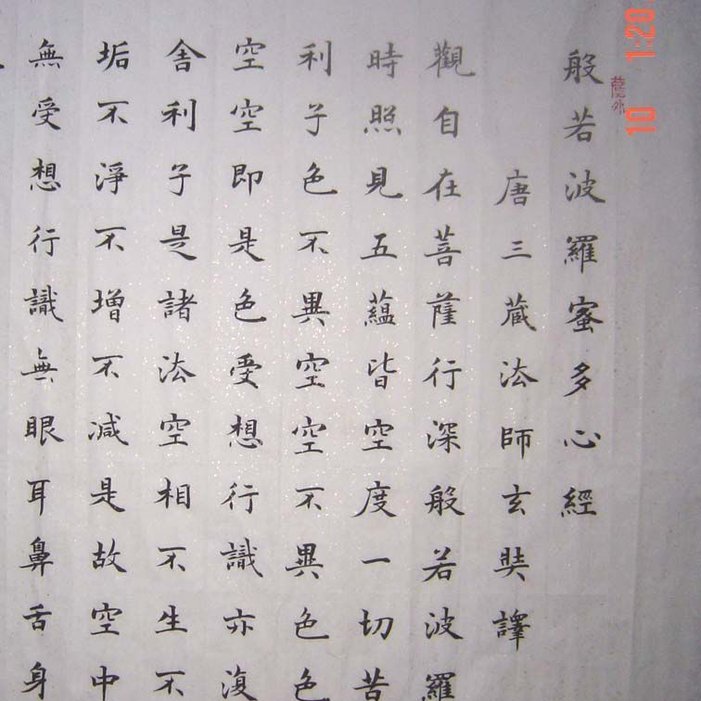 般若波羅蜜多心經
唐三藏法師玄奘譯
觀自在菩薩行深般若波羅
時照見五蘊皆空度一切苦
利子色不異空空不異色色
空空即是色受想行識亦復
舍利子是諸法空相不生不
垢不淨不增不減是故空中
無受想行識無眼耳鼻舌身
10 1:20